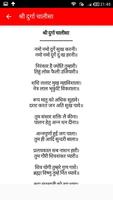 21:45
श्री दुर्गा चालीसा
श्री दुर्गा चालीसा
नमो नमो दुर्गे सुख करनी।
नमो नमो दुर्गे दुःख हरनी॥
निरंकार है ज्योति तुम्हारी।
तिहूं लोक फैली उजियारी॥
शशि ललाट मुख महाविशाला।
नेत्र लाल भृकुटि विकराला॥
रूप मातु को अधिक सुहावे।
दरश करत जन अति सुख पावे॥
तुम संसार शक्ति लै कीना।
पालन हेतु अन्न धन दीना॥
अन्नपूर्णा हुई जग पाला।
तुम ही आदि सुन्दरी बाला॥
प्रलयकाल सब नाशन हारी।
तुम गौरी शिवशंकर प्यारी॥
शिव योगी तुम्हरे गुण गावें।
ब्रह्मा विष्णु तुम्हें नित ध्यावें॥